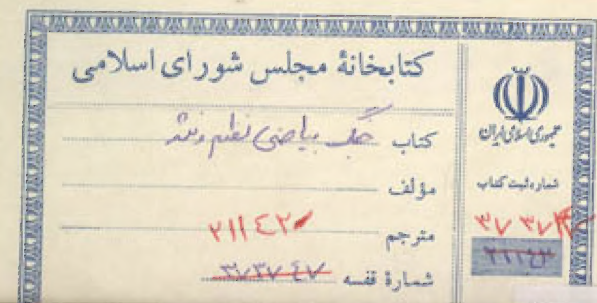 کتابخانهٔ مجلس شورای اسلامی
کتاب جنگ بیاضی نظم و نثر
مؤلف
مترجم
۲۱۱۴۲۰
شمارهٔ قفسه ۳۷۳۷۴۷
جمهوری اسلامی ایران
شماره ثبت کتاب